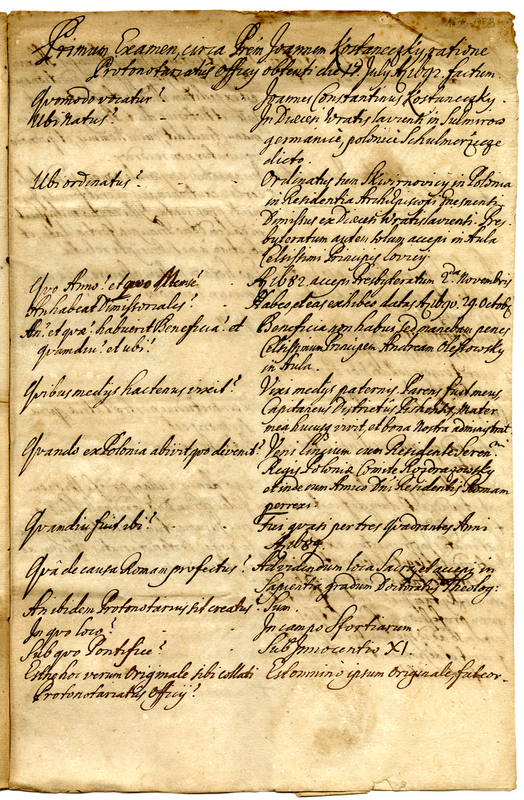 Primum Examen, circa Prem Joannem Kostaneczky ratione
Protonotariatus Officij obtenti die 17. July A 1692. factum
Quomodo vocatur? Joannes Constantinus Kostaneczky.
Ubi Natus? In Diœcesi Wratislaviensi in Sulmirow
germanicè, polonicè Schulmerizcze
dicto.
Ubi ordinatus? Ordinatus sum Skwirnovicij in Polonia
in Residentia Archiepiscopi Gnesnensi
Dimissus ex Diœcesi Wratislaviensi. Pres-
byteratum autem solum accepi in Aula
Celsissimi Principis Lovicij.
Quo Anno? et quo Mense? A 1682. accepi Presbyteratum 2da Novembris
An habeat Dimissoriales? Habeo, et eas exhibeo datas A 1690. 29. Octobris
An? et quæ? habuerit Beneficia? et Beneficia non habui, sed manebam penes
quamdiu? et ubi? Celsissimum Principem Andream Olszowsky
in Aula.
Quibus medijs hactenus vixit? Vixi medijs paternis. Parens fuit meus
Capitaneus Districtus Mater
mea hucusq vivit, et bona Nostra administrat.
Quando ex Polonia abivit, quo divenit? Veni cum Residente Seren
Regis Poloniæ Comite Rozdrazowsky
et inde cum Amico Dni Residentis Romam
perrexi.
Quamdiu fuit ibi? Fui quasi per tres Quadrantes Anni
A 1684.
Quâ de causa Romam profectus? Ad videndum loca Sacra, et accepi in
Sapientia gradum Doctoratus Theolog:
An ibidem Protonotarius sit creatus? Sum.
In quo loco? In campo Sfortiarum.
Sub quo Pontifice? Sub Innocentio XI.
Estne hoc verum Originale sibi collati Est omnino ipsum Originale, sub cor-
Protonotariatus Officij?